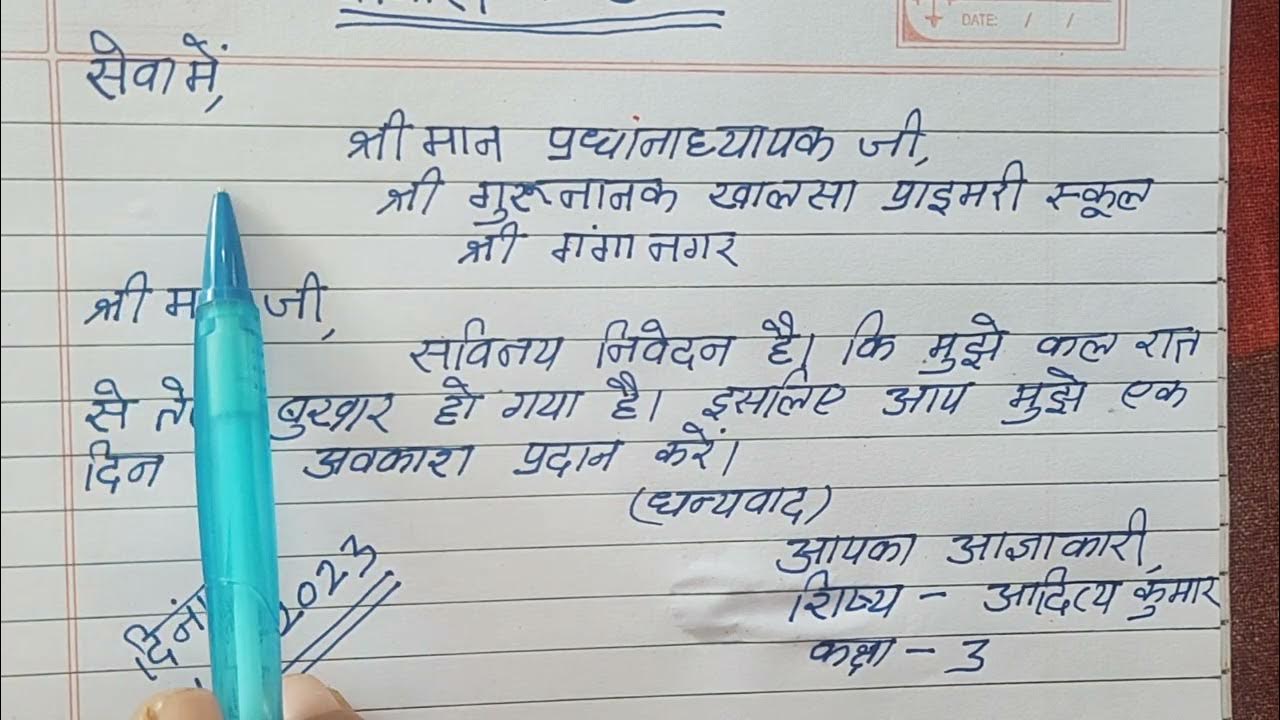 DATE: / /
सेवा में,
श्री मान प्रध्यांनाध्यापक जी,
श्री गुरूनानक खालसा प्राइमरी स्कूल
श्री गंगा नगर
श्री जी,
सविनय निवेदन है। कि मुझे कल रात
से बुखार हो गया है। इसलिए आप मुझे एक
दिन अवकाश प्रदान करें।
(धन्यवाद)
आपका आज्ञाकारी,
शिष्य - आदित्य कुमार
कक्षा - 3
2023